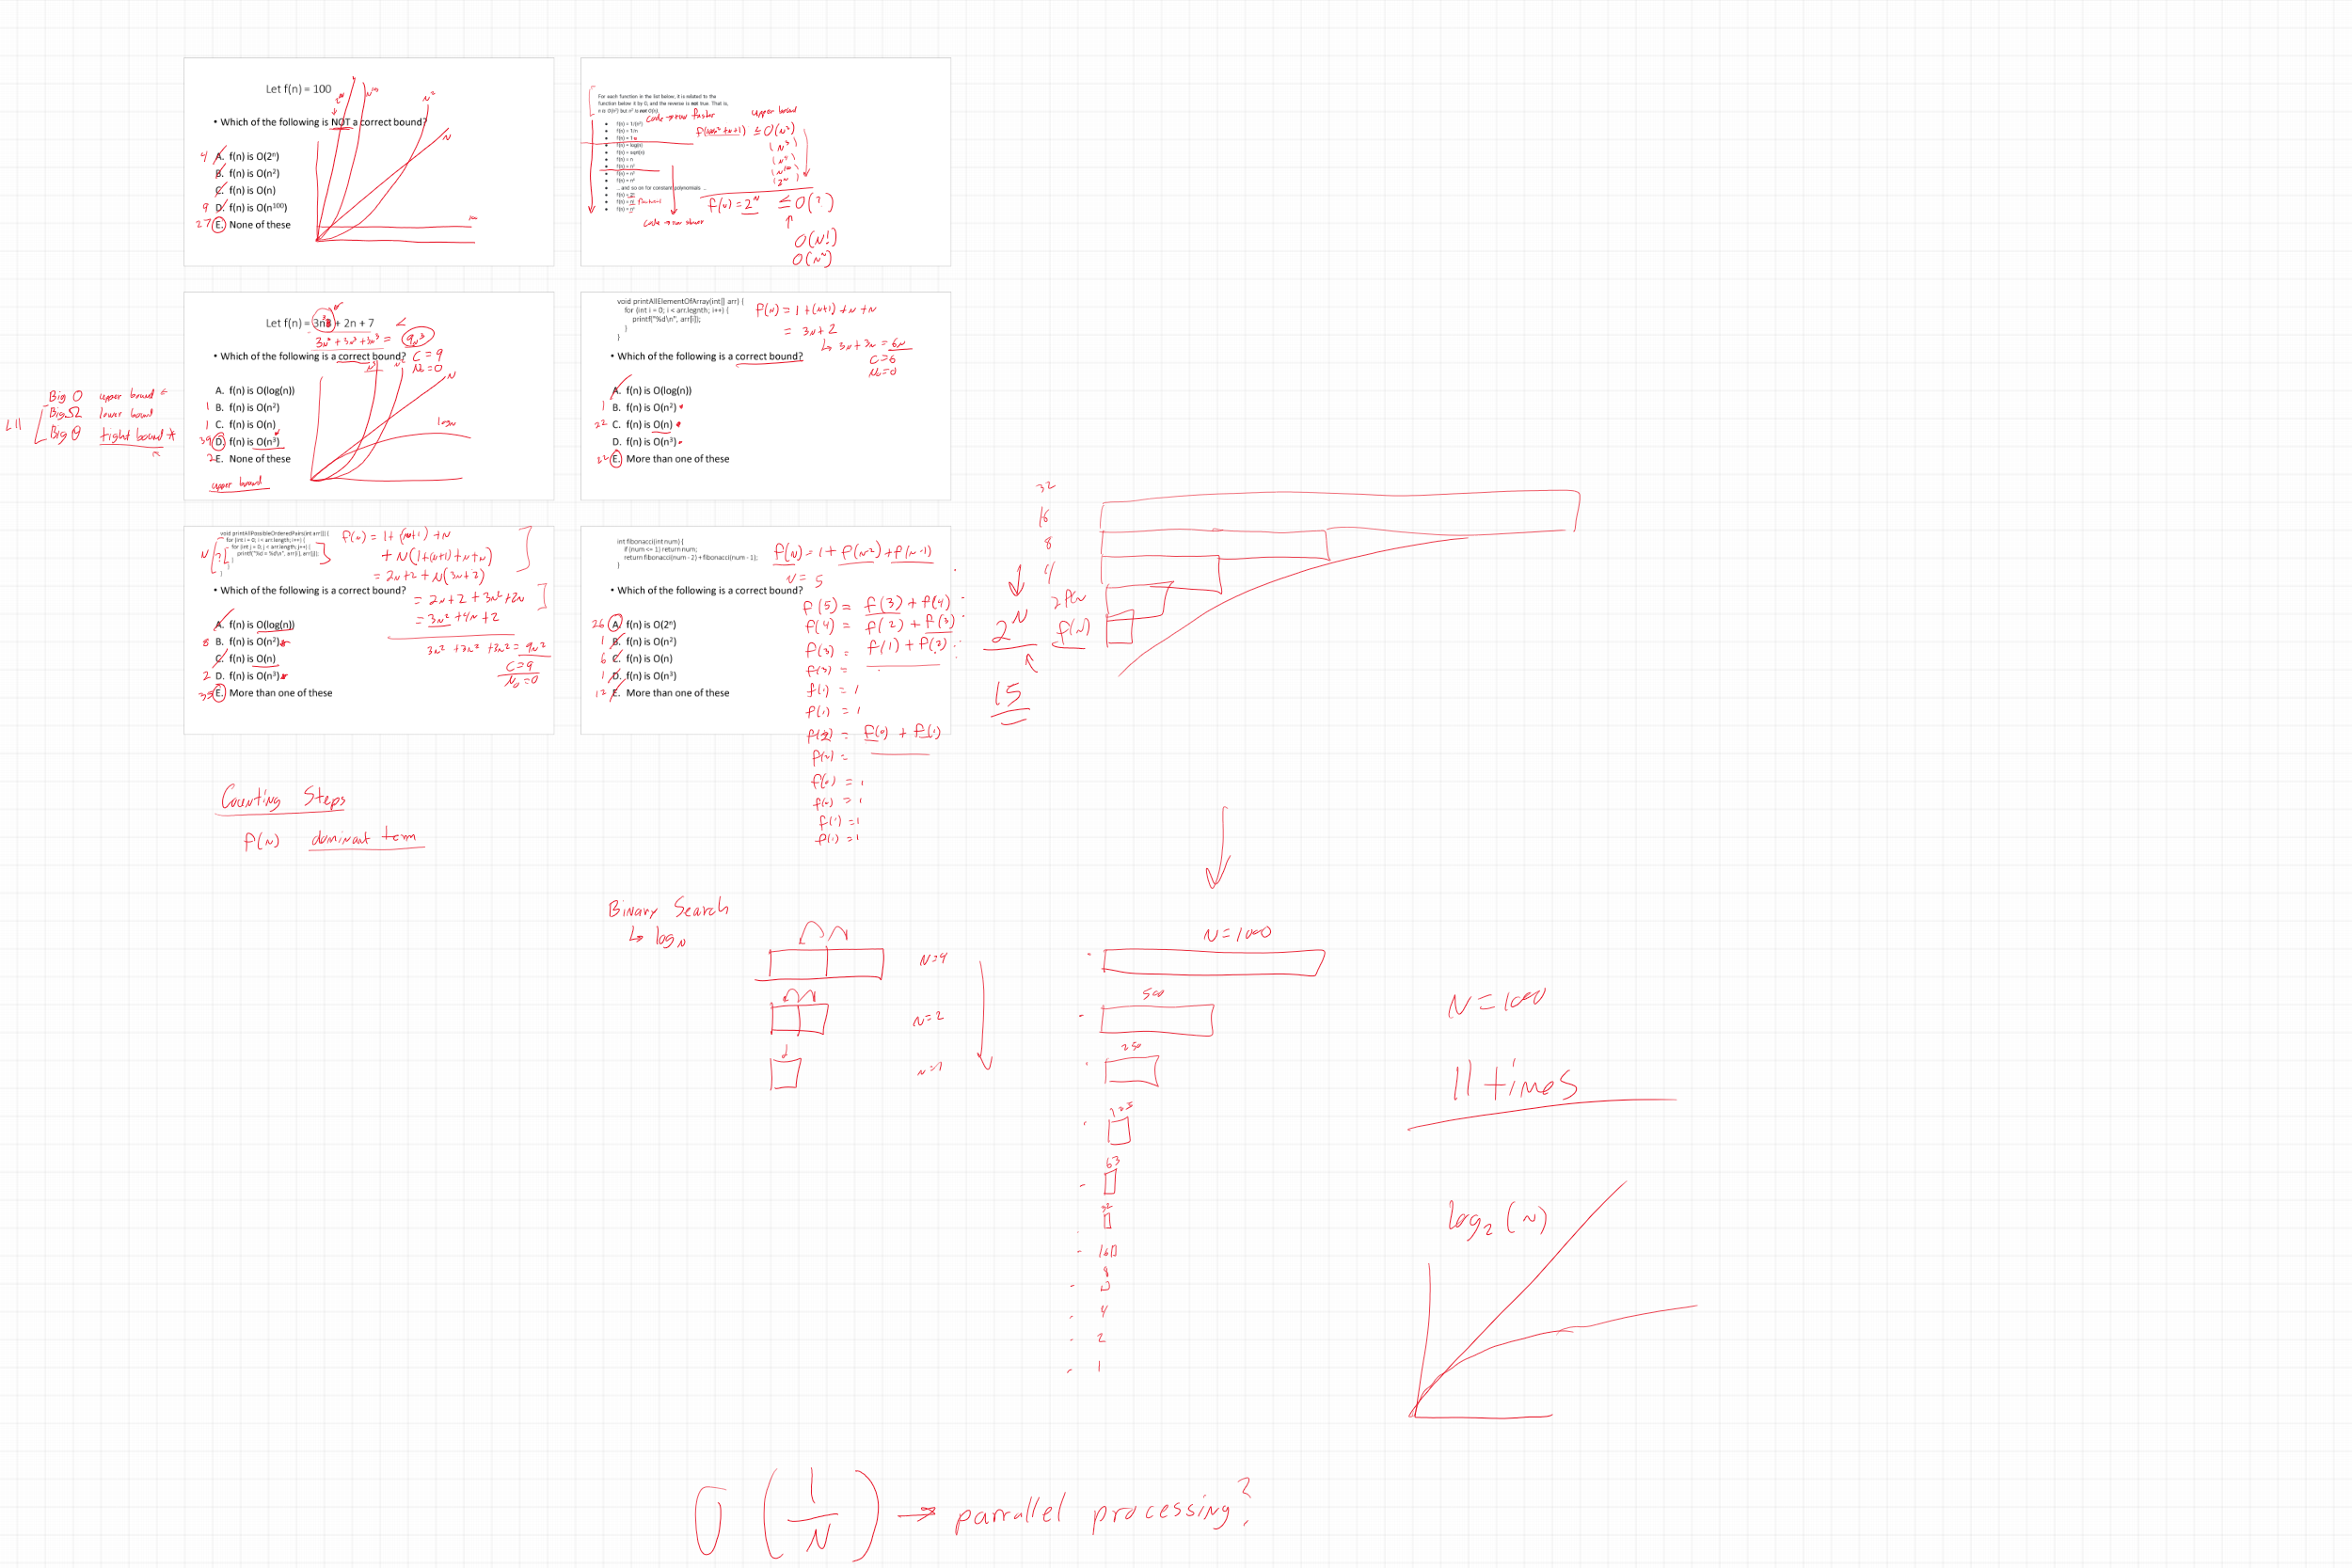 Let f(n) = 100
2ᴺ
N¹⁰⁰
N²
N
• Which of the following is NOT a correct bound?
4 A. f(n) is O(2ⁿ)
B. f(n) is O(n²)
C. f(n) is O(n)
9 D. f(n) is O(n¹⁰⁰)
27 E. None of these
100
For each function in the list below, it is related to the
function below it by O, and the reverse is not true. That is,
n is O(n²) but n² is not O(n).
code → run faster
upper bound
• f(n) = 1/(n²)
• f(n) = 1/n
• f(n) = 1
• f(n) = log(n)
• f(n) = sqrt(n)
• f(n) = n
• f(n) = n²
• f(n) = n³
• f(n) = n⁴
• ... and so on for constant polynomials ...
• f(n) = 2ⁿ
• f(n) = n!
• f(n) = nⁿ
≤ O(N²)
(N³)
(N⁴)
(N¹⁰⁰)
(2ᴺ)
code → run slower
f(N) = 2ᴺ ≤ O(?)
O(N!)
O(Nᴺ)
Let f(n) = 3n³ + 2n + 7
3N³ + 3N³ + 3N³ = 9N³
• Which of the following is a correct bound?
C = 9
N₀ = 0
N³
N²
N
log N
A. f(n) is O(log(n))
1 B. f(n) is O(n²)
1 C. f(n) is O(n)
39 D. f(n) is O(n³)
2 E. None of these
upper bound
Big O upper bound
Big Ω lower bound
Big Θ tight bound *
void printAllElementOfArray(int[] arr) {
for (int i = 0; i < arr.legnth; i++) {
printf("%d\n", arr[i]);
}
}
f(N) = 1 + (N+1) + N + N
= 3N + 2
↳ 3N + 3N = 6N
C = 6
N₀ = 0
• Which of the following is a correct bound?
A. f(n) is O(log(n))
1 B. f(n) is O(n²)
22 C. f(n) is O(n)
D. f(n) is O(n³)
22 E. More than one of these
void printAllPossibleOrderedPairs(int arr[]) {
for (int i = 0; i < arr.length; i++) {
for (int j = 0; j < arr.length; j++) {
printf("%d = %d\n", arr[i], arr[j]);
}
}
}
N
?
f(N) = 1 + (N+1) + N
+ N(1+(N+1)+N+N)
= 2N+2 + N(3N+2)
= 2N+2 + 3N² + 2N
= 3N² + 4N + 2
3N² + 3N² + 3N² = 9N²
C = 9
N₀ = 0
• Which of the following is a correct bound?
A. f(n) is O(log(n))
8 B. f(n) is O(n²)
C. f(n) is O(n)
2 D. f(n) is O(n³)
35 E. More than one of these
int fibonacci(int num) {
if (num <= 1) return num;
return fibonacci(num - 2) + fibonacci(num - 1);
}
f(N) = 1 + f(N-2) + f(N-1)
N = 5
• Which of the following is a correct bound?
26 A. f(n) is O(2ⁿ)
1 B. f(n) is O(n²)
6 C. f(n) is O(n)
1 D. f(n) is O(n³)
12 E. More than one of these
f(5) = f(3) + f(4)
f(4) = f(2) + f(3)
f(3) = f(1) + f(2)
f(3) =
f(1) = 1
f(1) = 1
f(2) = f(0) + f(1)
f(2) =
f(0) = 1
f(0) = 1
f(1) = 1
f(1) = 1
32
16
8
4
2
f(N)
2ᴺ
15
Counting Steps
f(N) dominant term
Binary Search
↳ log N
N=4
N=2
N=1
N=1000
500
250
125
63
32
16
8
4
2
1
N=1000
11 times
log₂(N)
O(1/N) → parrallel processing?